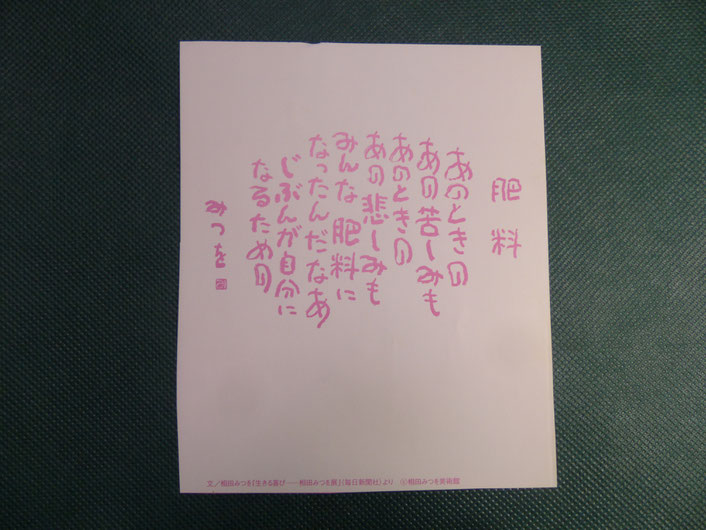 肥料
あのときの
あの苦しみも
あのときの
あの悲しみも
みんな肥料に
なったんだなあ
じぶんが自分に
なるための
みつを
文／相田みつを『生きる喜び──相田みつを展』(毎日新聞社)より ©相田みつを美術館